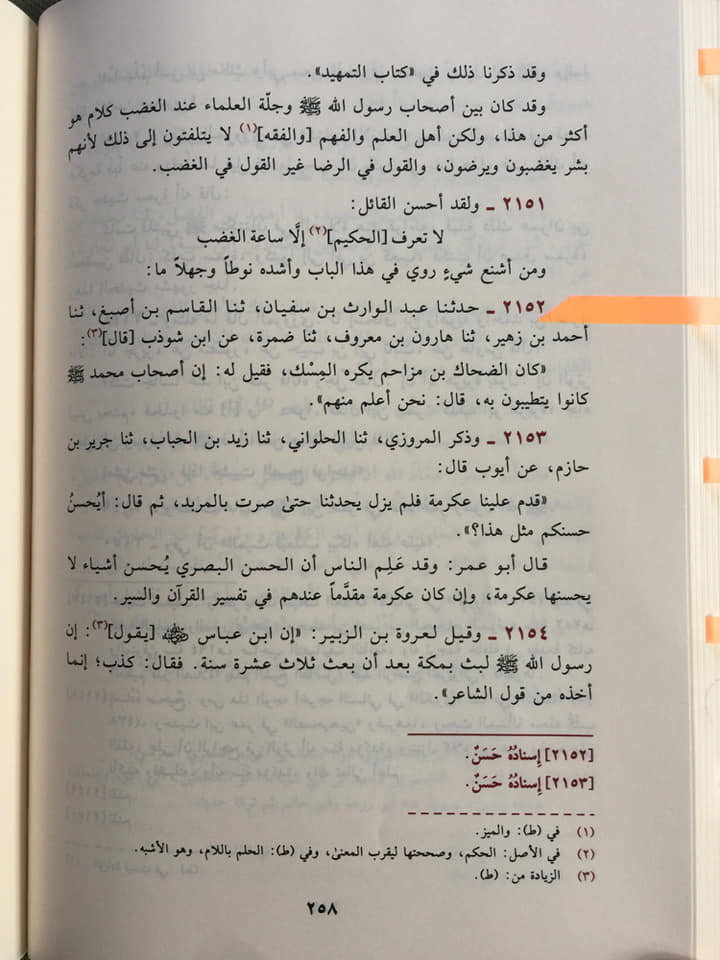 وقد ذكرنا ذلك في «كتاب التمهيد».
وقد كان بين أصحاب رسول الله ﷺ وجلّة العلماء عند الغضب كلام هو
أكثر من هذا، ولكن أهل العلم والفهم [والفقه](١) لا يتلفتون إلى ذلك لأنهم
بشر يغضبون ويرضون، والقول في الرضا غير القول في الغضب.
٢١٥١ ـ ولقد أحسن القائل:
لا تعرف [الحكيم](٢) إلَّا ساعة الغضب
ومن أشنع شيءٍ روي في هذا الباب وأشده نوطاً وجهلاً ما:
٢١٥٢ ـ حدثنا عبد الوارث بن سفيان، ثنا القاسم بن أصبغ، ثنا
أحمد بن زهير، ثنا هارون بن معروف، ثنا ضمرة، عن ابن شوذب [قال](٣):
«كان الضحاك بن مزاحم يكره المِسْك، فقيل له: إن أصحاب محمد ﷺ
كانوا يتطيبون به، قال: نحن أعلم منهم».
٢١٥٣ ـ وذكر المروزي، ثنا الحلواني، ثنا زيد بن الحباب، ثنا جرير بن
حازم، عن أيوب قال:
«قدم علينا عكرمة فلم يزل يحدثنا حتىٰ صرت بالمربد، ثم قال: أيُحسنُ
حسنكم مثل هذا؟».
قال أبو عمر: وقد عَلِم الناس أن الحسن البصري يُحسن أشياء لا
يحسنها عكرمة، وإن كان عكرمة مقدَّماً عندهم في تفسير القرآن والسير.
٢١٥٤ ـ وقيل لعروة بن الزبير: «إن ابن عباس ﵁ [يقول](٣): إن
رسول الله ﷺ لبث بمكة بعد أن بعث ثلاث عشرة سنة. فقال: كذب؛ إنما
أخذه من قول الشاعر».
[٢١٥٢] إسنادُهُ حَسَنٌ.
[٢١٥٣] إسنادُهُ حَسَنٌ.
(١) في (ط): والميز.
(٢) في الأصل: الحكم، وصححتها ليقرب المعنىٰ، وفي (ط): الحلم باللام، وهو الأشبه.
(٣) الزيادة من: (ط).
٢٥٨